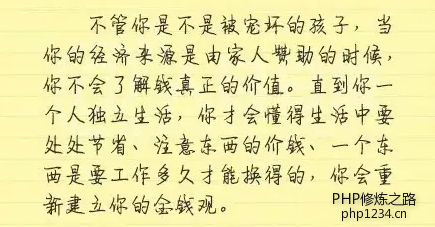 不管你是不是被宠坏的孩子，当
你的经济来源是由家人赞助的时候，
你不会了解钱真正的价值。直到你一
个人独立生活，你才会懂得生活中要
处处节省、注意东西的价钱、一个东
西是要工作多久才能换得的，你会重
新建立你的金钱观。
PHP修炼之路
php1234.cn